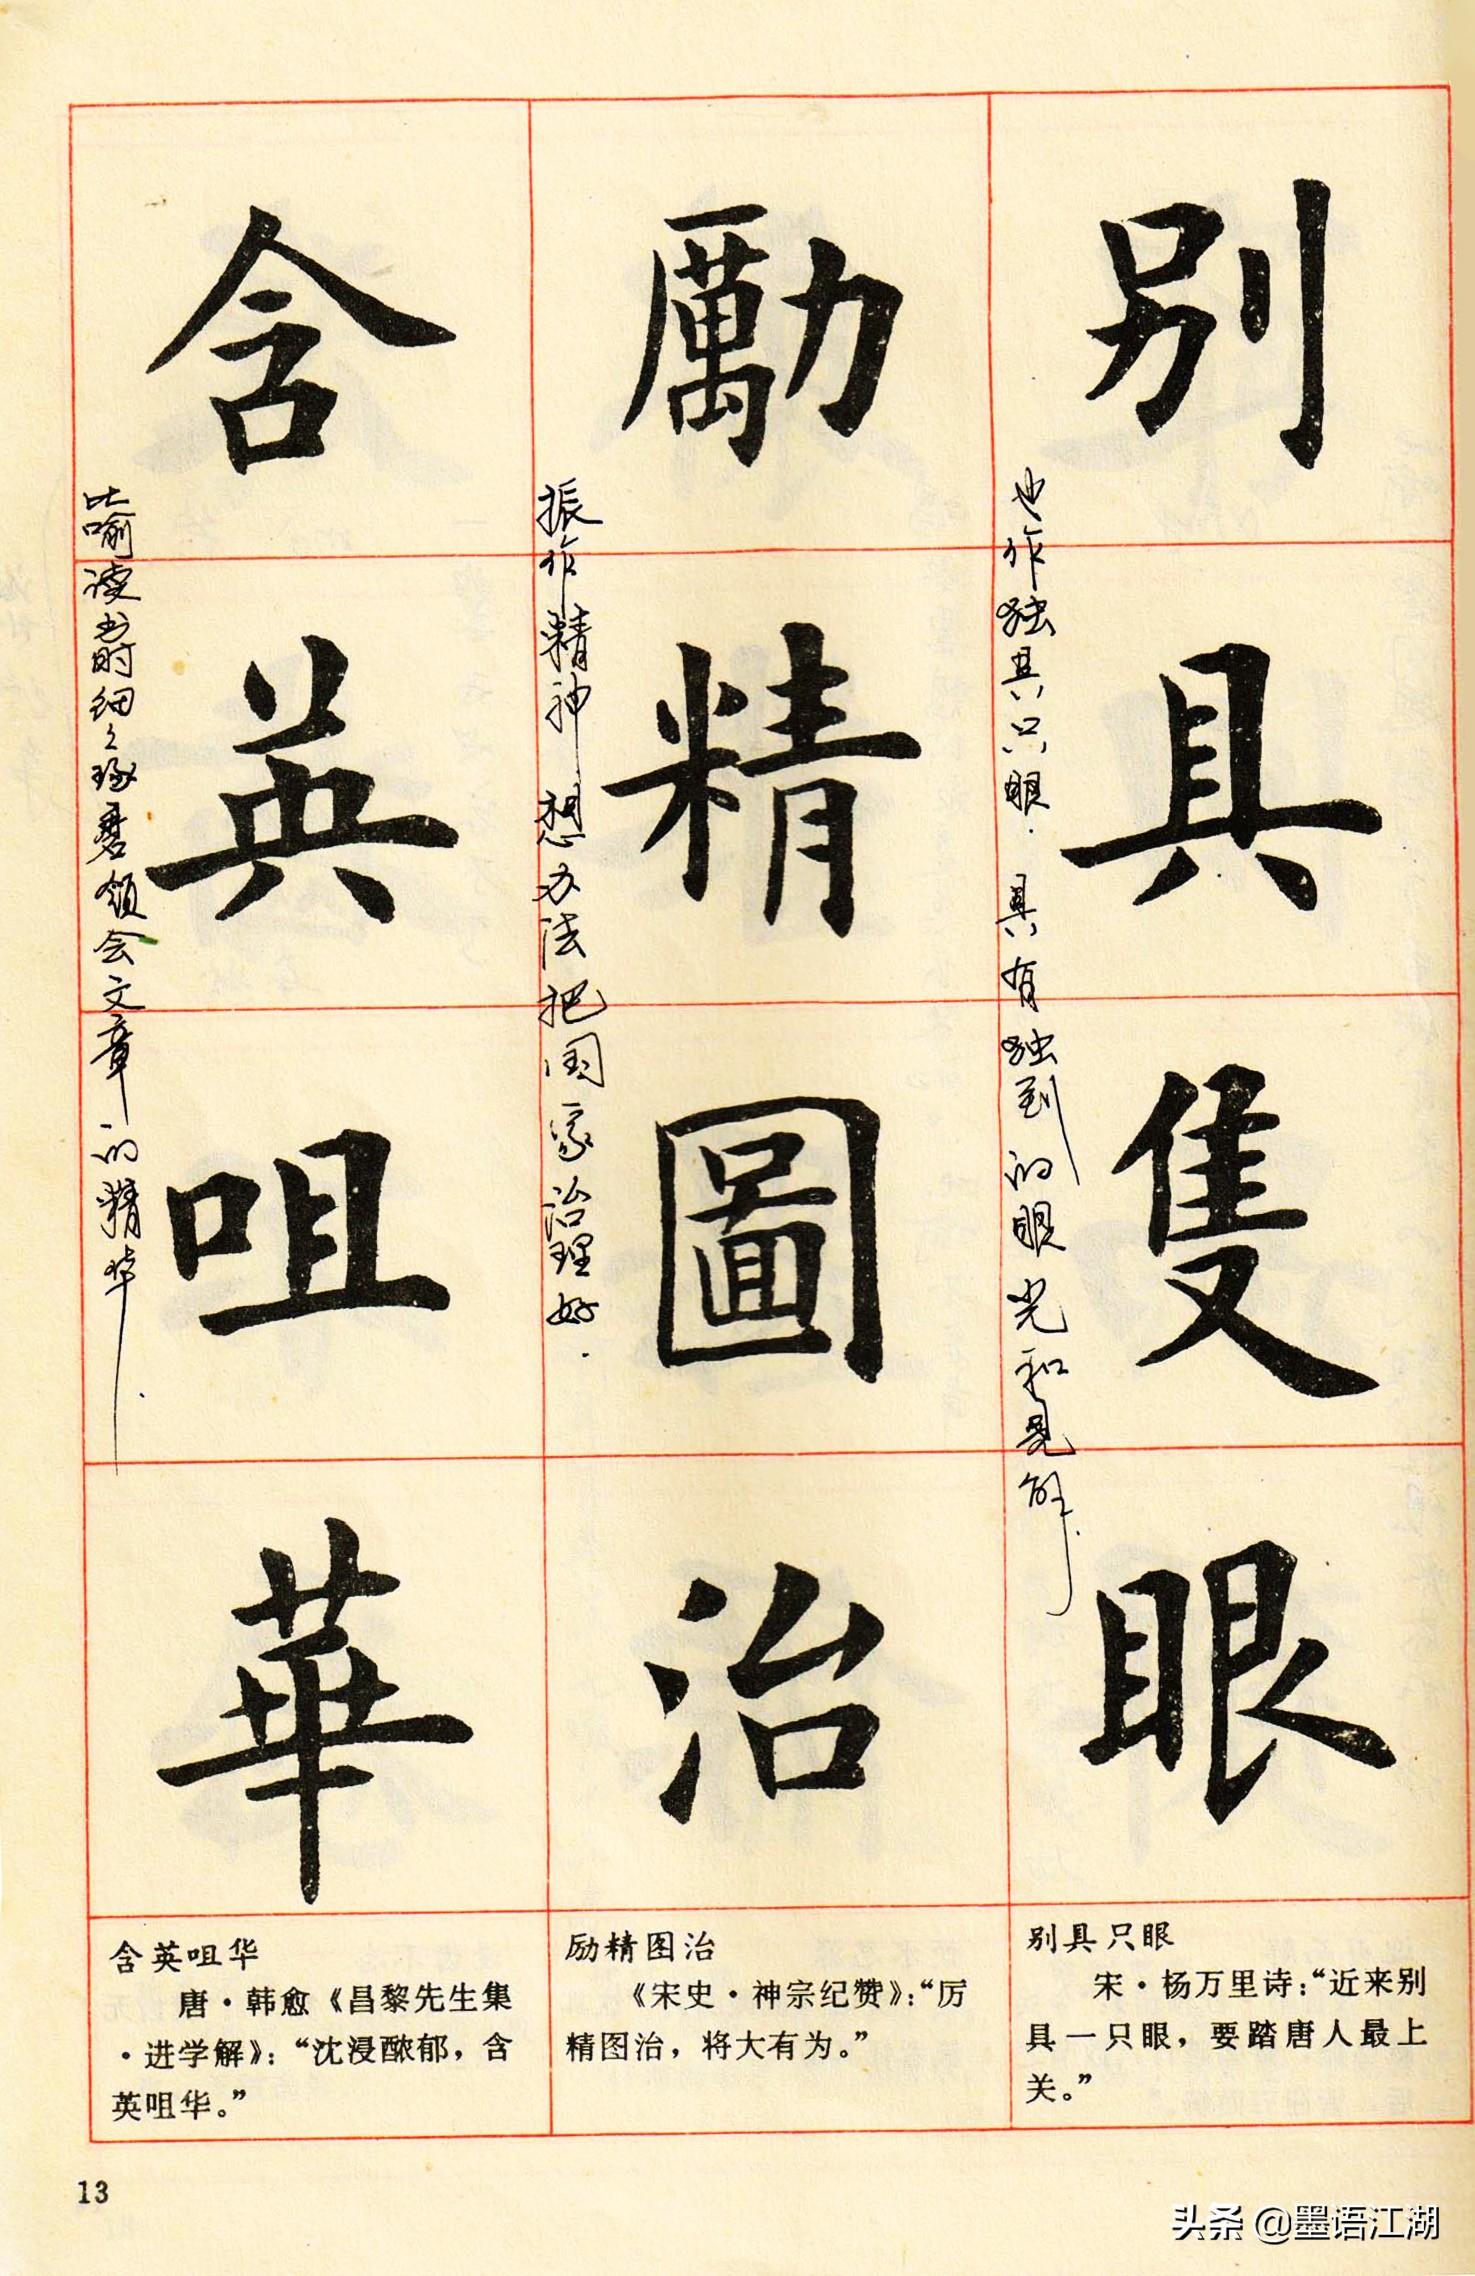 別具隻眼
也作独具只眼.具有独到的眼光和见解.
勵精圖治
振作精神想办法把国家治理好.
含英咀華
比喻读书时细々琢磨领会文章的精华.
别具只眼
宋·杨万里诗：“近来别
具一只眼，要踏唐人最上
关。”
励精图治
《宋史·神宗纪赞》：“厉
精图治，将大有为。”
含英咀华
唐·韩愈《昌黎先生集
·进学解》：“沈浸醲郁，含
英咀华。”
13
头条 @墨语江湖